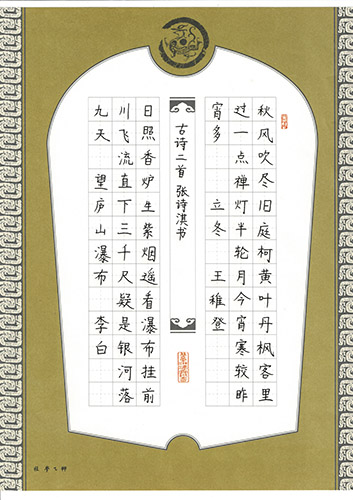 秋风吹尽旧庭柯黄叶丹枫客里
过一点禅灯半轮月今宵寒较昨
宵多 立冬 王稚登
古诗二首 张诗淇书
日照香炉生紫烟遥看瀑布挂前
川飞流直下三千尺疑是银河落
九天 望庐山瀑布 李白